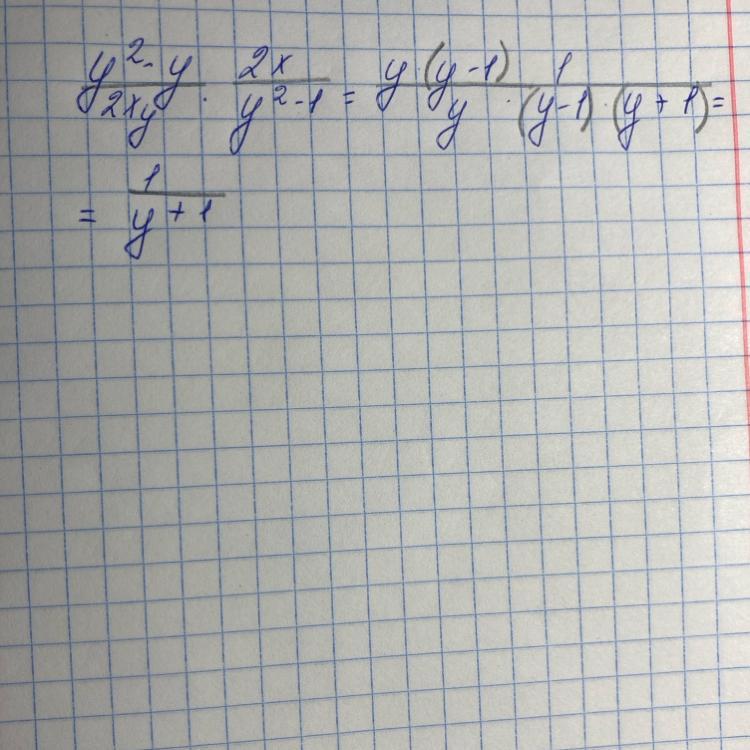 y² - y / 2xy · 2x / y² - 1 = y · (y - 1) 1 / y · (y - 1) · (y + 1) =
= 1 / y + 1